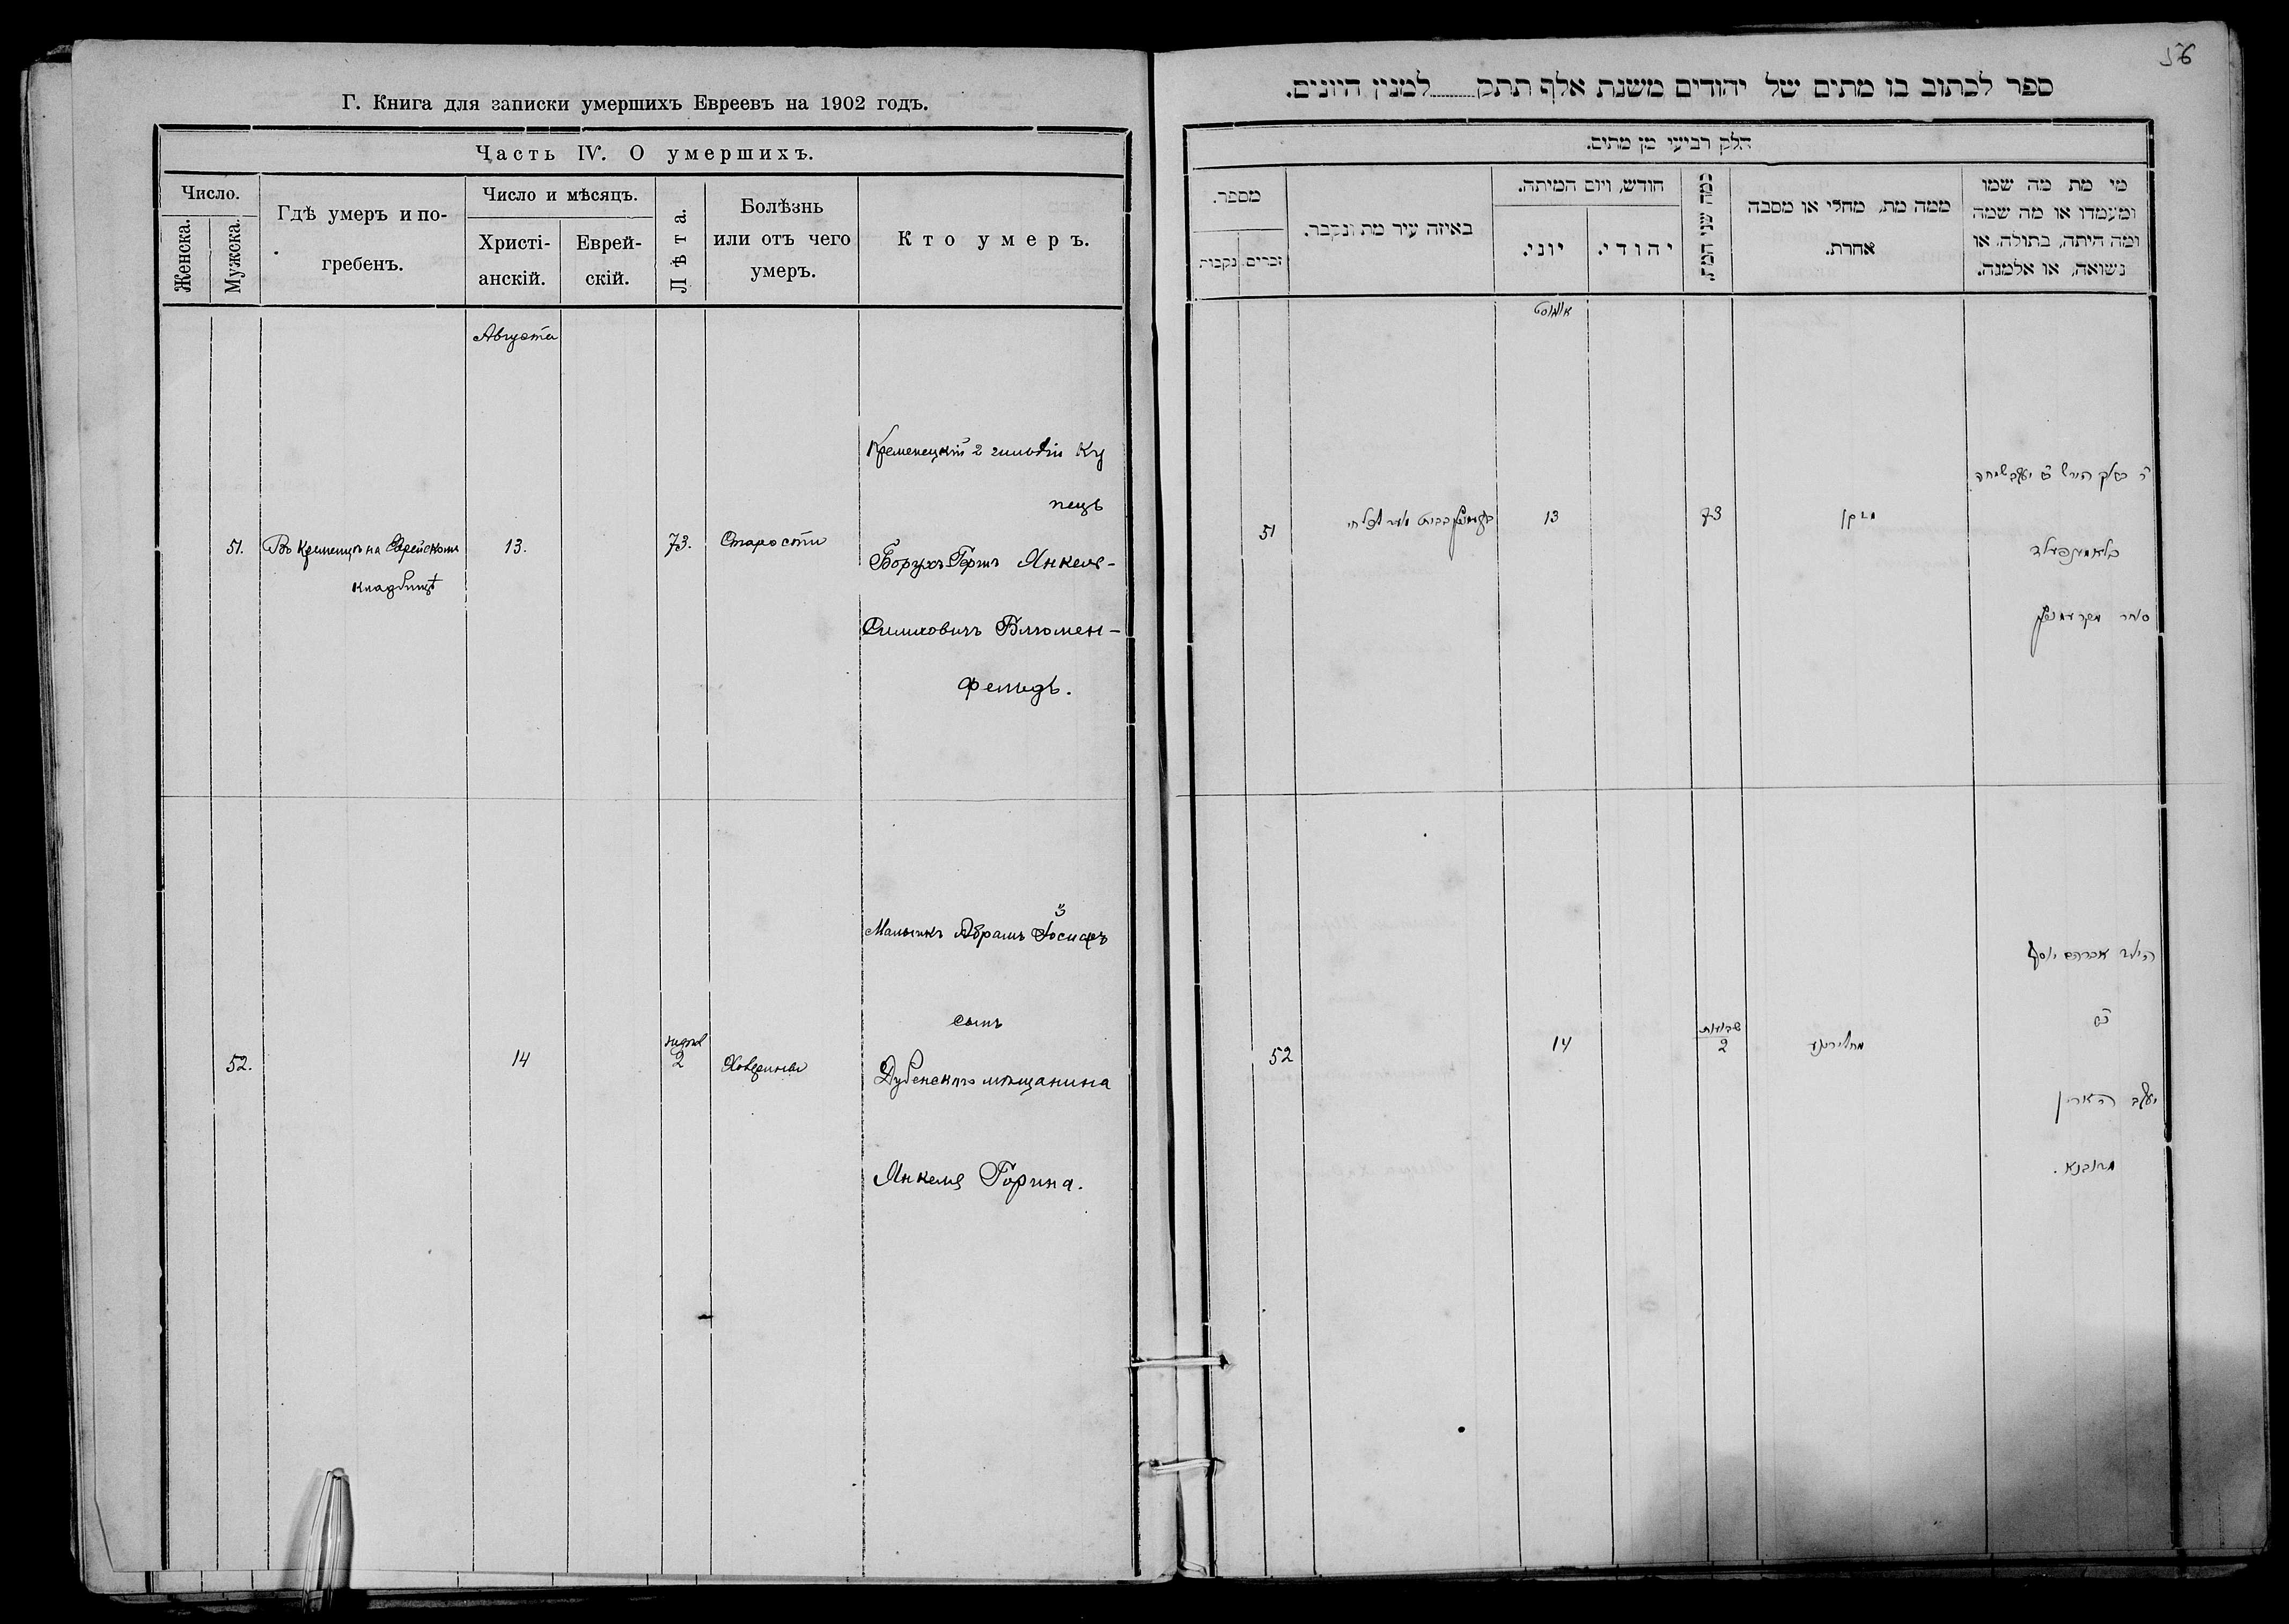 Г. Книга для записки умершихъ Евреевъ на 1902 годъ.
Часть IV. О умершихъ.
Число.
Женска.
Мужска.
Гдѣ умеръ и по-
гребенъ.
Число и мѣсяцъ.
Христі-
анскій.
Еврей-
скій.
Лѣта.
Болѣзнь
или отъ чего
умеръ.
Кто умеръ.
Августа
51.
Въ Кременцѣ на Еврейскомъ
кладбищѣ
13.
73.
Старости
Кременецкій 2 гильдіи Ку
пецъ
Борухъ Гершъ Янкель-
Симховичъ Блюмен-
фельдъ.
52.
14
2
Мальчикъ Абрамъ Іосифъ
сынъ
Дубенскаго мѣщанина
Янкеля Горина.
ספר לכתוב בו מתים של יהודים משנת אלף תתק.........למנין היונים.
חלק רביעי מן מתים.
מספר.
נקבות
זכרים.
באיזה עיר מת ונקבר.
חודש, ויום המיתה.
יוני.
יהודי.
כמה שני המת
ממה מת, מחלי או מסבה
אחרת.
מי מת מה שמו
ומעמדו או מה שמה
ומה היתה, בתולה, או
נשואה, או אלמנה.
אוגוסט
51
13
73
מזקן
יעקב שמחה
בלומענפעלד
סוחר מקרעמניץ
52
14
שבועות
2
הילד אברהם יוסף
יעקב הארין
מדובנא.